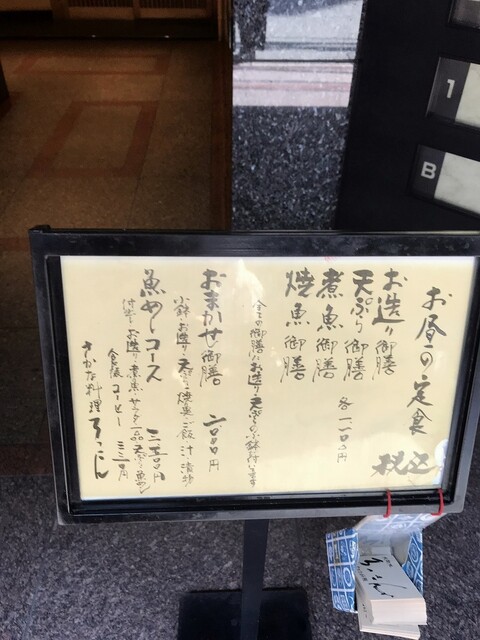 お昼の定食
税込
お造り御膳
天ぷら御膳
煮魚御膳
焼魚御膳
各一一〇〇円
全ての御膳にお造り、天ぷらの小鉢が付いています
おまかせ御膳
小鉢、お造り、天ぷら、焼魚、ご飯、汁、漬物
魚めしコース
三三〇〇円
付出、お造り、煮魚、サラダ、一品、天ぷら、魚めし
食後のコーヒー 三三〇円
さかな料理
1
B